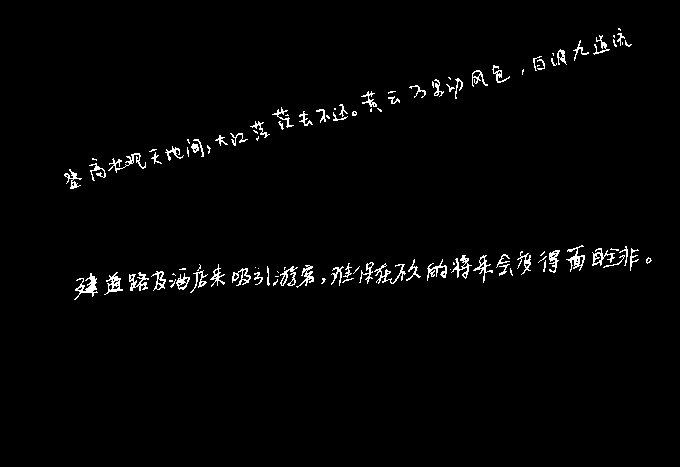 登高壮观天地间，大江茫茫去不还。黄云万里动风色，白波九道流
建道路及酒店来吸引游客，难保在不久的将来会变得面目全非。